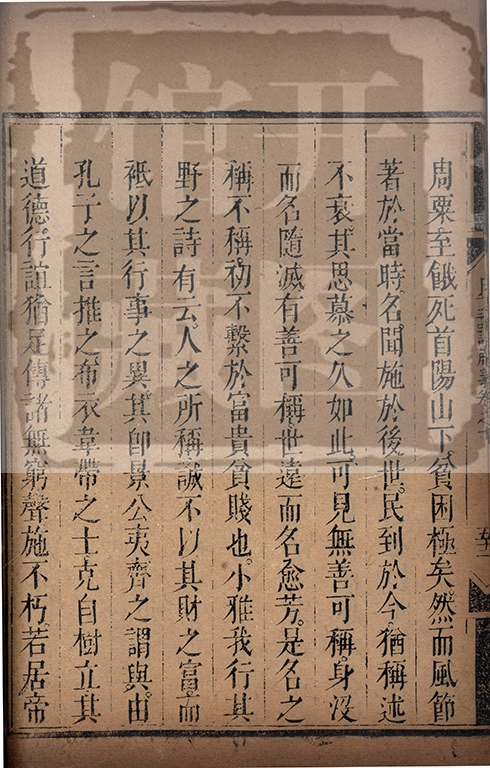 周粟至餓死首陽山下貧困極矣然而風節
著於當時名聞施於後世民到於今猶稱述
不衰其思慕之久如此可見無善可稱身沒
而名隨滅有善可稱世遠而名愈芳是名之
稱不稱初不繫於富貴貧賤也小雅我行其
野之詩有云人之所稱誠不以其財之富而
袛以其行事之異其即景公夷齊之謂與由
孔子之言推之布衣韋帶之士克自樹立其
道德行誼猶足傳諸無窮聲施不朽若居帝